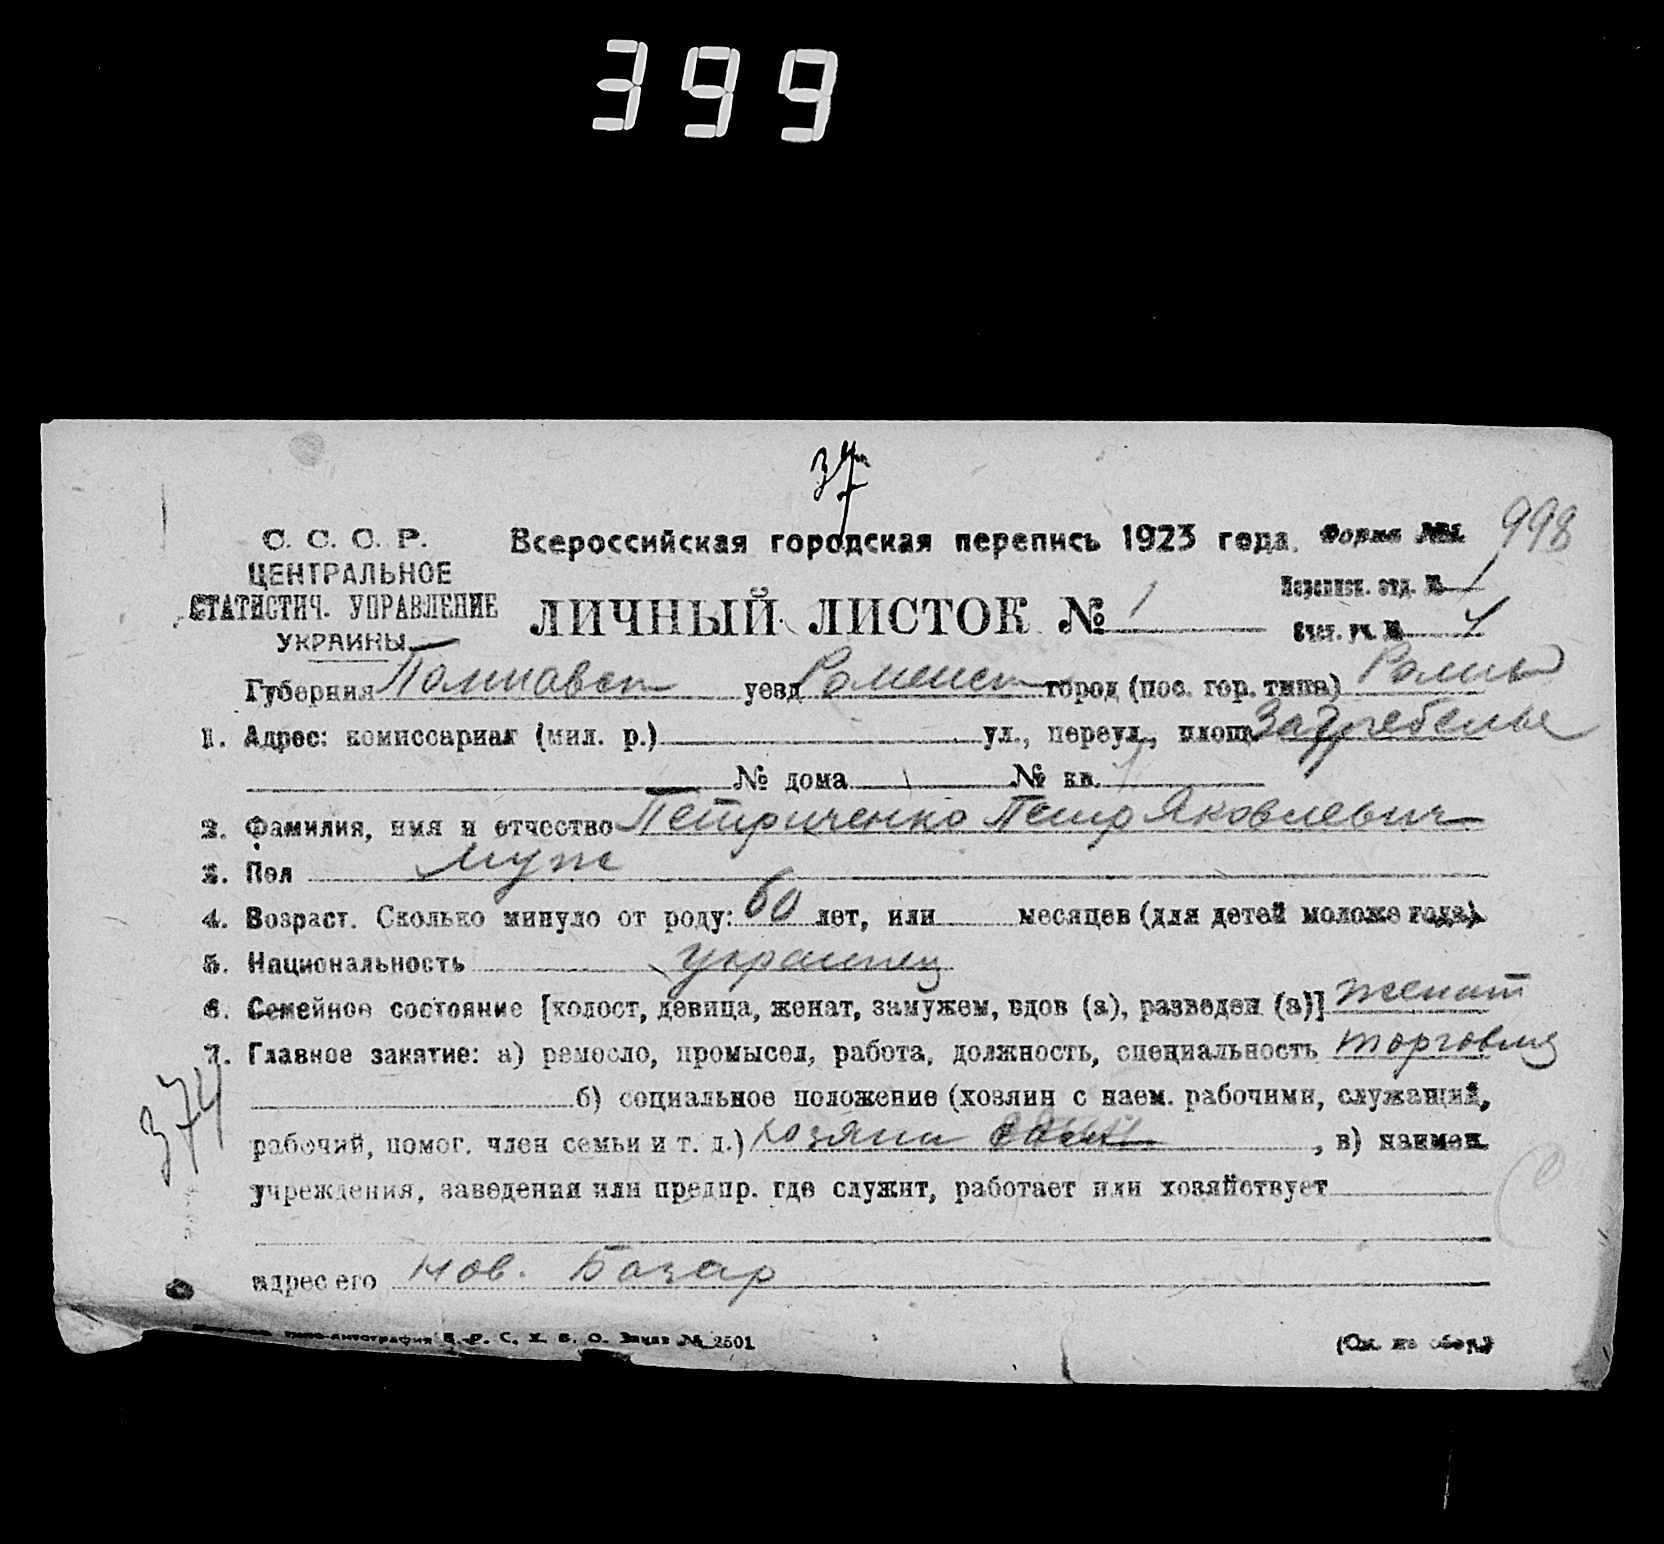 399
37
998
С. С. С. Р.
ЦЕНТРАЛЬНОЕ
СТАТИСТИЧ. УПРАВЛЕНИЕ
УКРАИНЫ
Всероссийская городская перепись 1923 года. Форма №1.
Переписн. отд. № 1
ЛИЧНЫЙ ЛИСТОК № 1
Счет. уч. № 1
Губерния Полтавск уезд Роменск город (пос. гор. типа) Ромны
1. Адрес: комиссариат (мил. р.) ул., переул., площ. Загребелье
№ дома № кв.
2. Фамилия, имя и отчество Петриченко Петр Яковлевич
3. Пол муж
4. Возраст. Сколько минуло от роду: 60 лет, или месяцев (для детей моложе года)
5. Национальность украинец
6. Семейное состояние [холост, девица, женат, замужем, вдов (а), разведен (а)] женат
7. Главное занятие: а) ремесло, промысел, работа, должность, специальность торговля
б) социальное положение (хозяин с наем. рабочими, служащий,
рабочий, помог. член семьи и т. д.) хозяин один, в) наимен.
учреждения, заведения или предпр. где служит, работает или хозяйствует
адрес его Нов. Базар
374
типо-литография В. Р. С. Х. В. О. Заказ № 2501
(См. на обор.)